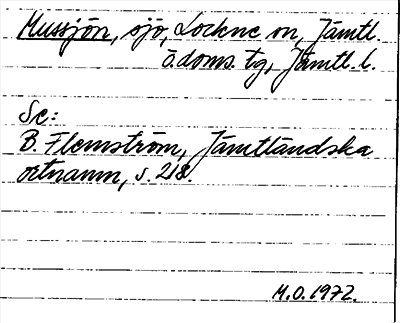 Mussjön, sjö, Lockne sn, Jämtl.
ö. doms. tg, Jämtl. l.
Se:
B. Flemström, Jämtländska
ortnamn, s. 218.
M.O. 1972.